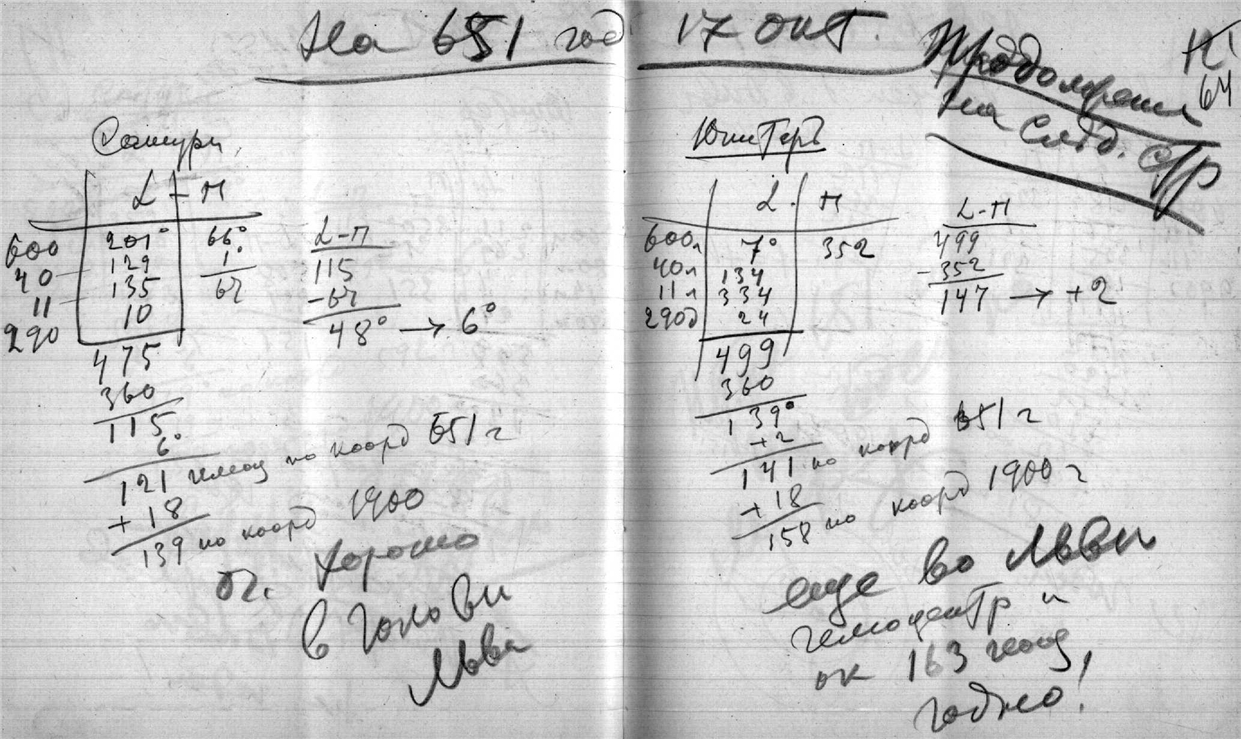 На 651 год 17 окт.
Продолжение
на след. стр
64
Сатурн
L - П
600 201° 66°
40 129 1°
11 135 67
290 10
475
360
115
6°
121 гелиоц по коорд 651 г
+ 18
139 по коорд 1900
L-П
115
-67
48° → 6°
хорошо
в голови
Льва
Юпитеръ
L П
600л 7° 352
40л 134
11л 334
290д 24
499
360
139°
+2
141 по коорд 651 г
+18
158 по коорд 1900 г
L-П
499
-352
147 → +2
еще во Льви
гелиоцентр и
ок 163 геоц
годно!